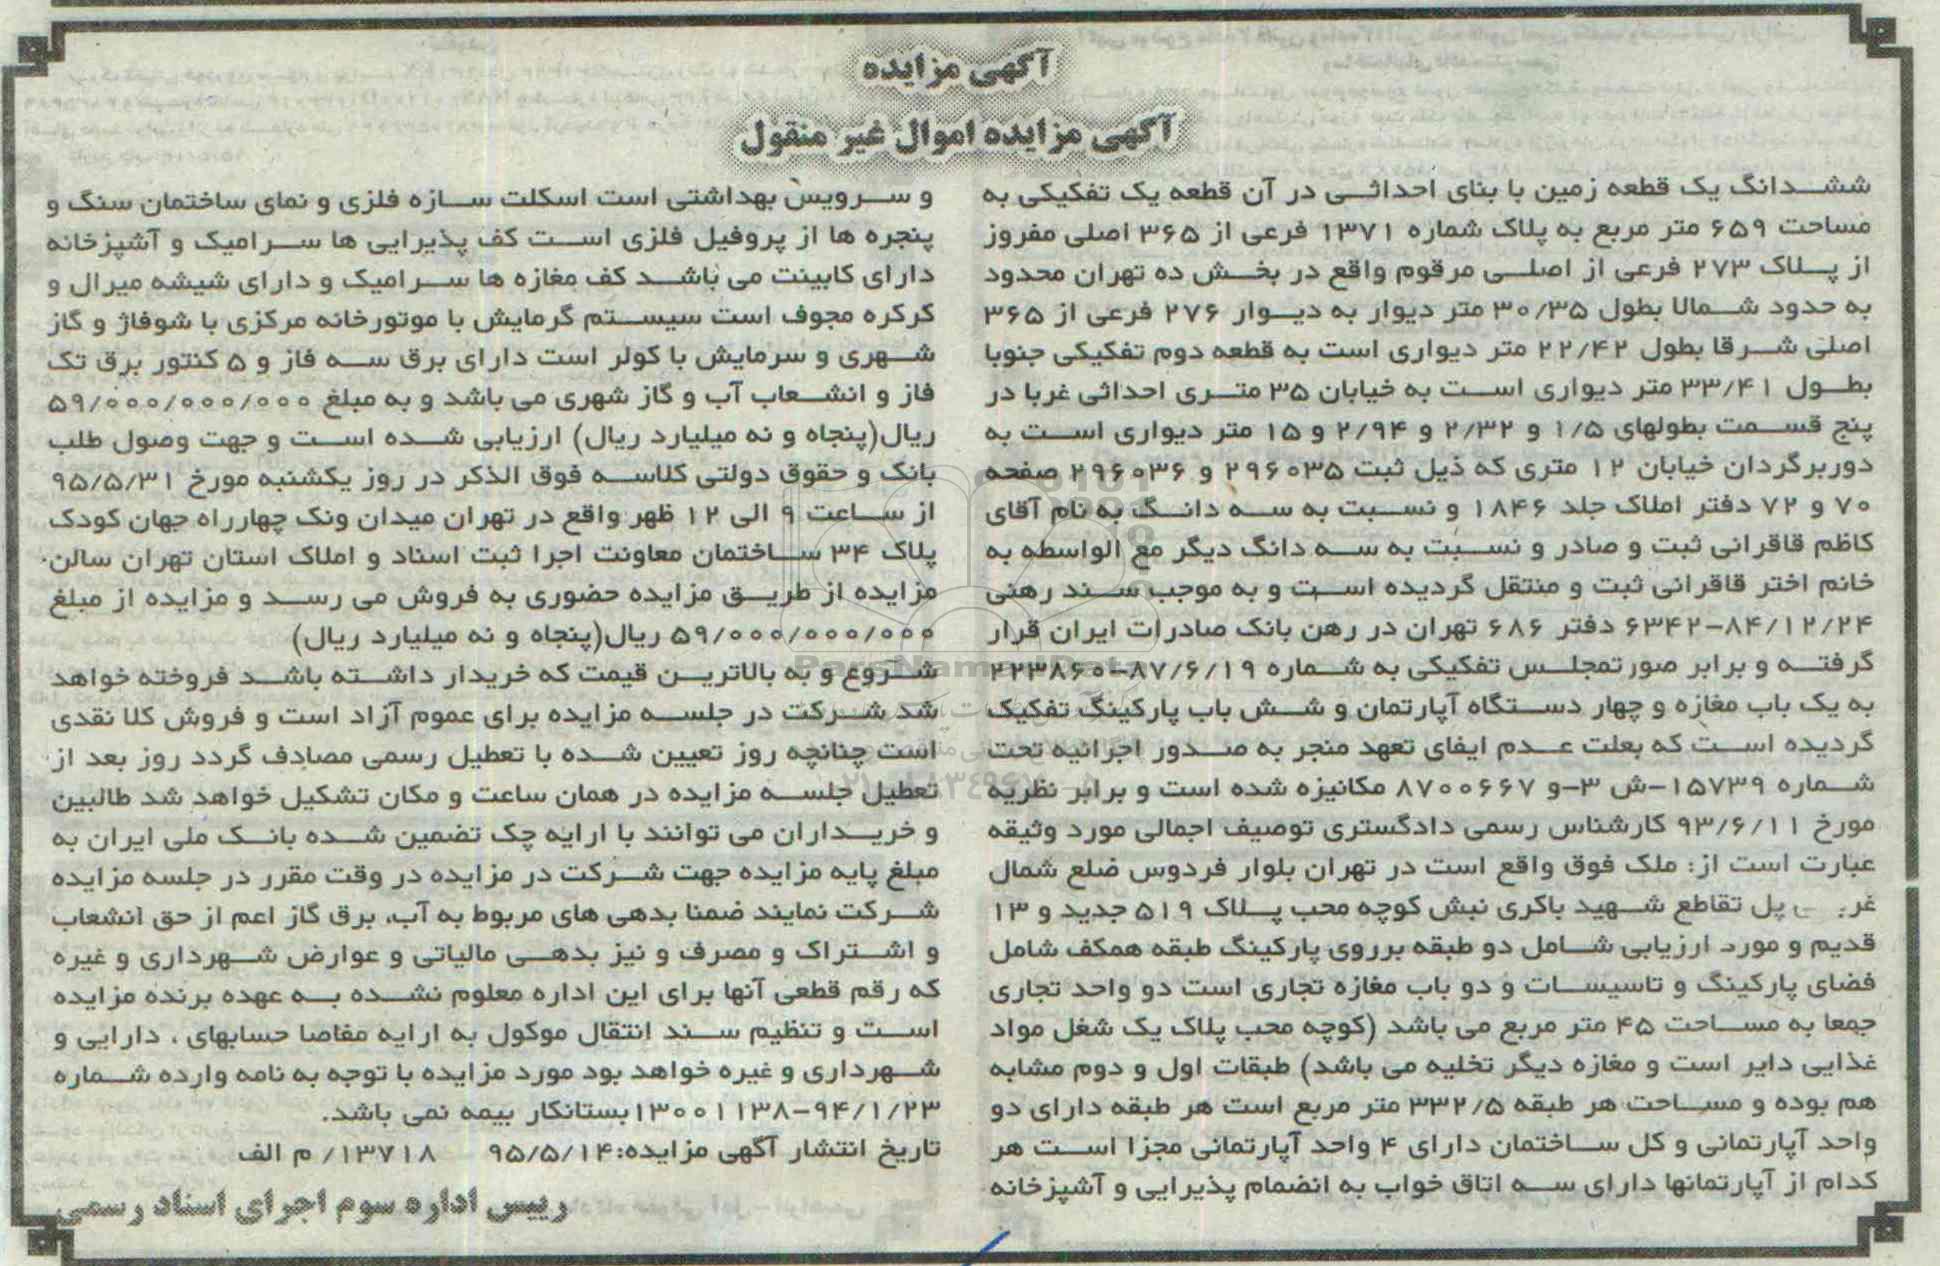 آگهی مزایده
آگهی مزایده اموال غیر منقول
ششدانگ یک قطعه زمین با بنای احداثی در آن قطعه یک تفکیکی به
مساحت ۶۵۹ متر مربع به پلاک شماره ۱۳۷۱ فرعی از ۳۶۵ اصلی مفروز
از پلاک ۲۷۳ فرعی از اصلی مرقوم واقع در بخش ده تهران محدود
به حدود شمالا بطول ۳۰/۳۵ متر دیوار به دیوار ۲۷۶ فرعی از ۳۶۵
اصلی شرقا بطول ۲۲/۴۲ متر دیواری است به قطعه دوم تفکیکی جنوبا
بطول ۳۳/۴۱ متر دیواری است به خیابان ۳۵ متری احداثی غربا در
پنج قسمت بطولهای ۱/۵ و ۲/۳۲ و ۲/۹۴ و ۱۵ متر دیواری است به
دوربرگردان خیابان ۱۲ متری که ذیل ثبت ۲۹۶۰۳۵ و ۲۹۶۰۳۶ صفحه
۷۰ و ۷۲ دفتر املاک جلد ۱۸۴۶ و نسبت به سه دانگ به نام آقای
کاظم قاقرانی ثبت و صادر و نسبت به سه دانگ دیگر مع الواسطه به
خانم اختر قاقرانی ثبت و منتقل گردیده است و به موجب سند رهنی
۸۴/۱۲/۲۴-۶۳۴۲ دفتر ۶۸۶ تهران در رهن بانک صادرات ایران قرار
گرفته و برابر صورتمجلس تفکیکی به شماره ۸۷/۶/۱۹-۲۲۳۸۶۰
به یک باب مغازه و چهار دستگاه آپارتمان و شش باب پارکینگ تفکیک
گردیده است که بعلت عدم ایفای تعهد منجر به صدور اجرائیه تحت
شماره ۱۵۷۳۹-ش ۳-و ۸۷۰۰۶۶۷ مکانیزه شده است و برابر نظریه
مورخ ۹۳/۶/۱۱ کارشناس رسمی دادگستری توصیف اجمالی مورد وثیقه
عبارت است از: ملک فوق واقع است در تهران بلوار فردوس ضلع شمال
پل تقاطع شهید باکری نبش کوچه محب پلاک ۵۱۹ جدید و ۱۳
قدیم و مورد ارزیابی شامل دو طبقه برروی پارکینگ طبقه همکف شامل
فضای پارکینگ و تاسیسات و دو باب مغازه تجاری است دو واحد تجاری
جمعا به مساحت ۴۵ متر مربع می باشد (کوچه محب پلاک یک شغل مواد
غذایی دایر است و مغازه دیگر تخلیه می باشد) طبقات اول و دوم مشابه
هم بوده و مساحت هر طبقه ۳۳۲/۵ متر مربع است هر طبقه دارای دو
واحد آپارتمانی و کل ساختمان دارای ۴ واحد آپارتمانی مجزا است هر
کدام از آپارتمانها دارای سه اتاق خواب به انضمام پذیرایی و آشپزخانه
و سرویس بهداشتی است اسکلت سازه فلزی و نمای ساختمان سنگ و
پنجره ها از پروفیل فلزی است کف پذیرایی ها سرامیک و آشپزخانه
دارای کابینت می باشد کف مغازه ها سرامیک و دارای شیشه میرال و
کرکره مجوف است سیستم گرمایش با موتورخانه مرکزی با شوفاژ و گاز
شهری و سرمایش با کولر است دارای برق سه فاز و ۵ کنتور برق تک
فاز و انشعاب آب و گاز شهری می باشد و به مبلغ ۵۹/۰۰۰/۰۰۰/۰۰۰
ریال(پنجاه و نه میلیارد ریال) ارزیابی شده است و جهت وصول طلب
بانک و حقوق دولتی کلاسه فوق الذکر در روز یکشنبه مورخ ۹۵/۵/۳۱
از ساعت ۹ الی ۱۲ ظهر واقع در تهران میدان ونک چهارراه جهان کودک
پلاک ۳۴ ساختمان معاونت اجرا ثبت اسناد و املاک استان تهران سالن
مزایده از طریق مزایده حضوری به فروش می رسد و مزایده از مبلغ
۵۹/۰۰۰/۰۰۰/۰۰۰ ریال(پنجاه و نه میلیارد ریال)
شروع و به بالاترین قیمت که خریدار داشته باشد فروخته خواهد
شد شرکت در جلسه مزایده برای عموم آزاد است و فروش کلا نقدی
است چنانچه روز تعیین شده با تعطیل رسمی مصادف گردد روز بعد از
تعطیل جلسه مزایده در همان ساعت و مکان تشکیل خواهد شد طالبین
و خریداران می توانند با ارایه چک تضمین شده بانک ملی ایران به
مبلغ پایه مزایده جهت شرکت در مزایده در وقت مقرر در جلسه مزایده
شرکت نمایند ضمنا بدهی های مربوط به آب، برق گاز اعم از حق انشعاب
و اشتراک و مصرف و نیز بدهی مالیاتی و عوارض شهرداری و غیره
که رقم قطعی آنها برای این اداره معلوم نشده به عهده برنده مزایده
است و تنظیم سند انتقال موکول به ارایه مفاصا حسابهای ، دارایی و
شهرداری و غیره خواهد بود مورد مزایده با توجه به نامه وارده شماره
۹۴/۱/۲۳-۱۳۰۰۱۱۳۸بستانکار بیمه نمی باشد.
تاریخ انتشار آگهی مزایده:۹۵/۵/۱۴ ۱۳۷۱۸/ م الف
رییس اداره سوم اجرای اسناد رسمی
ParsNamadData